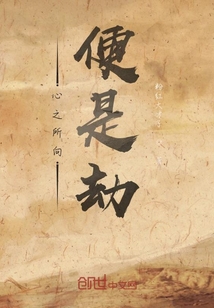 便是劫
心之所向
创世中文网